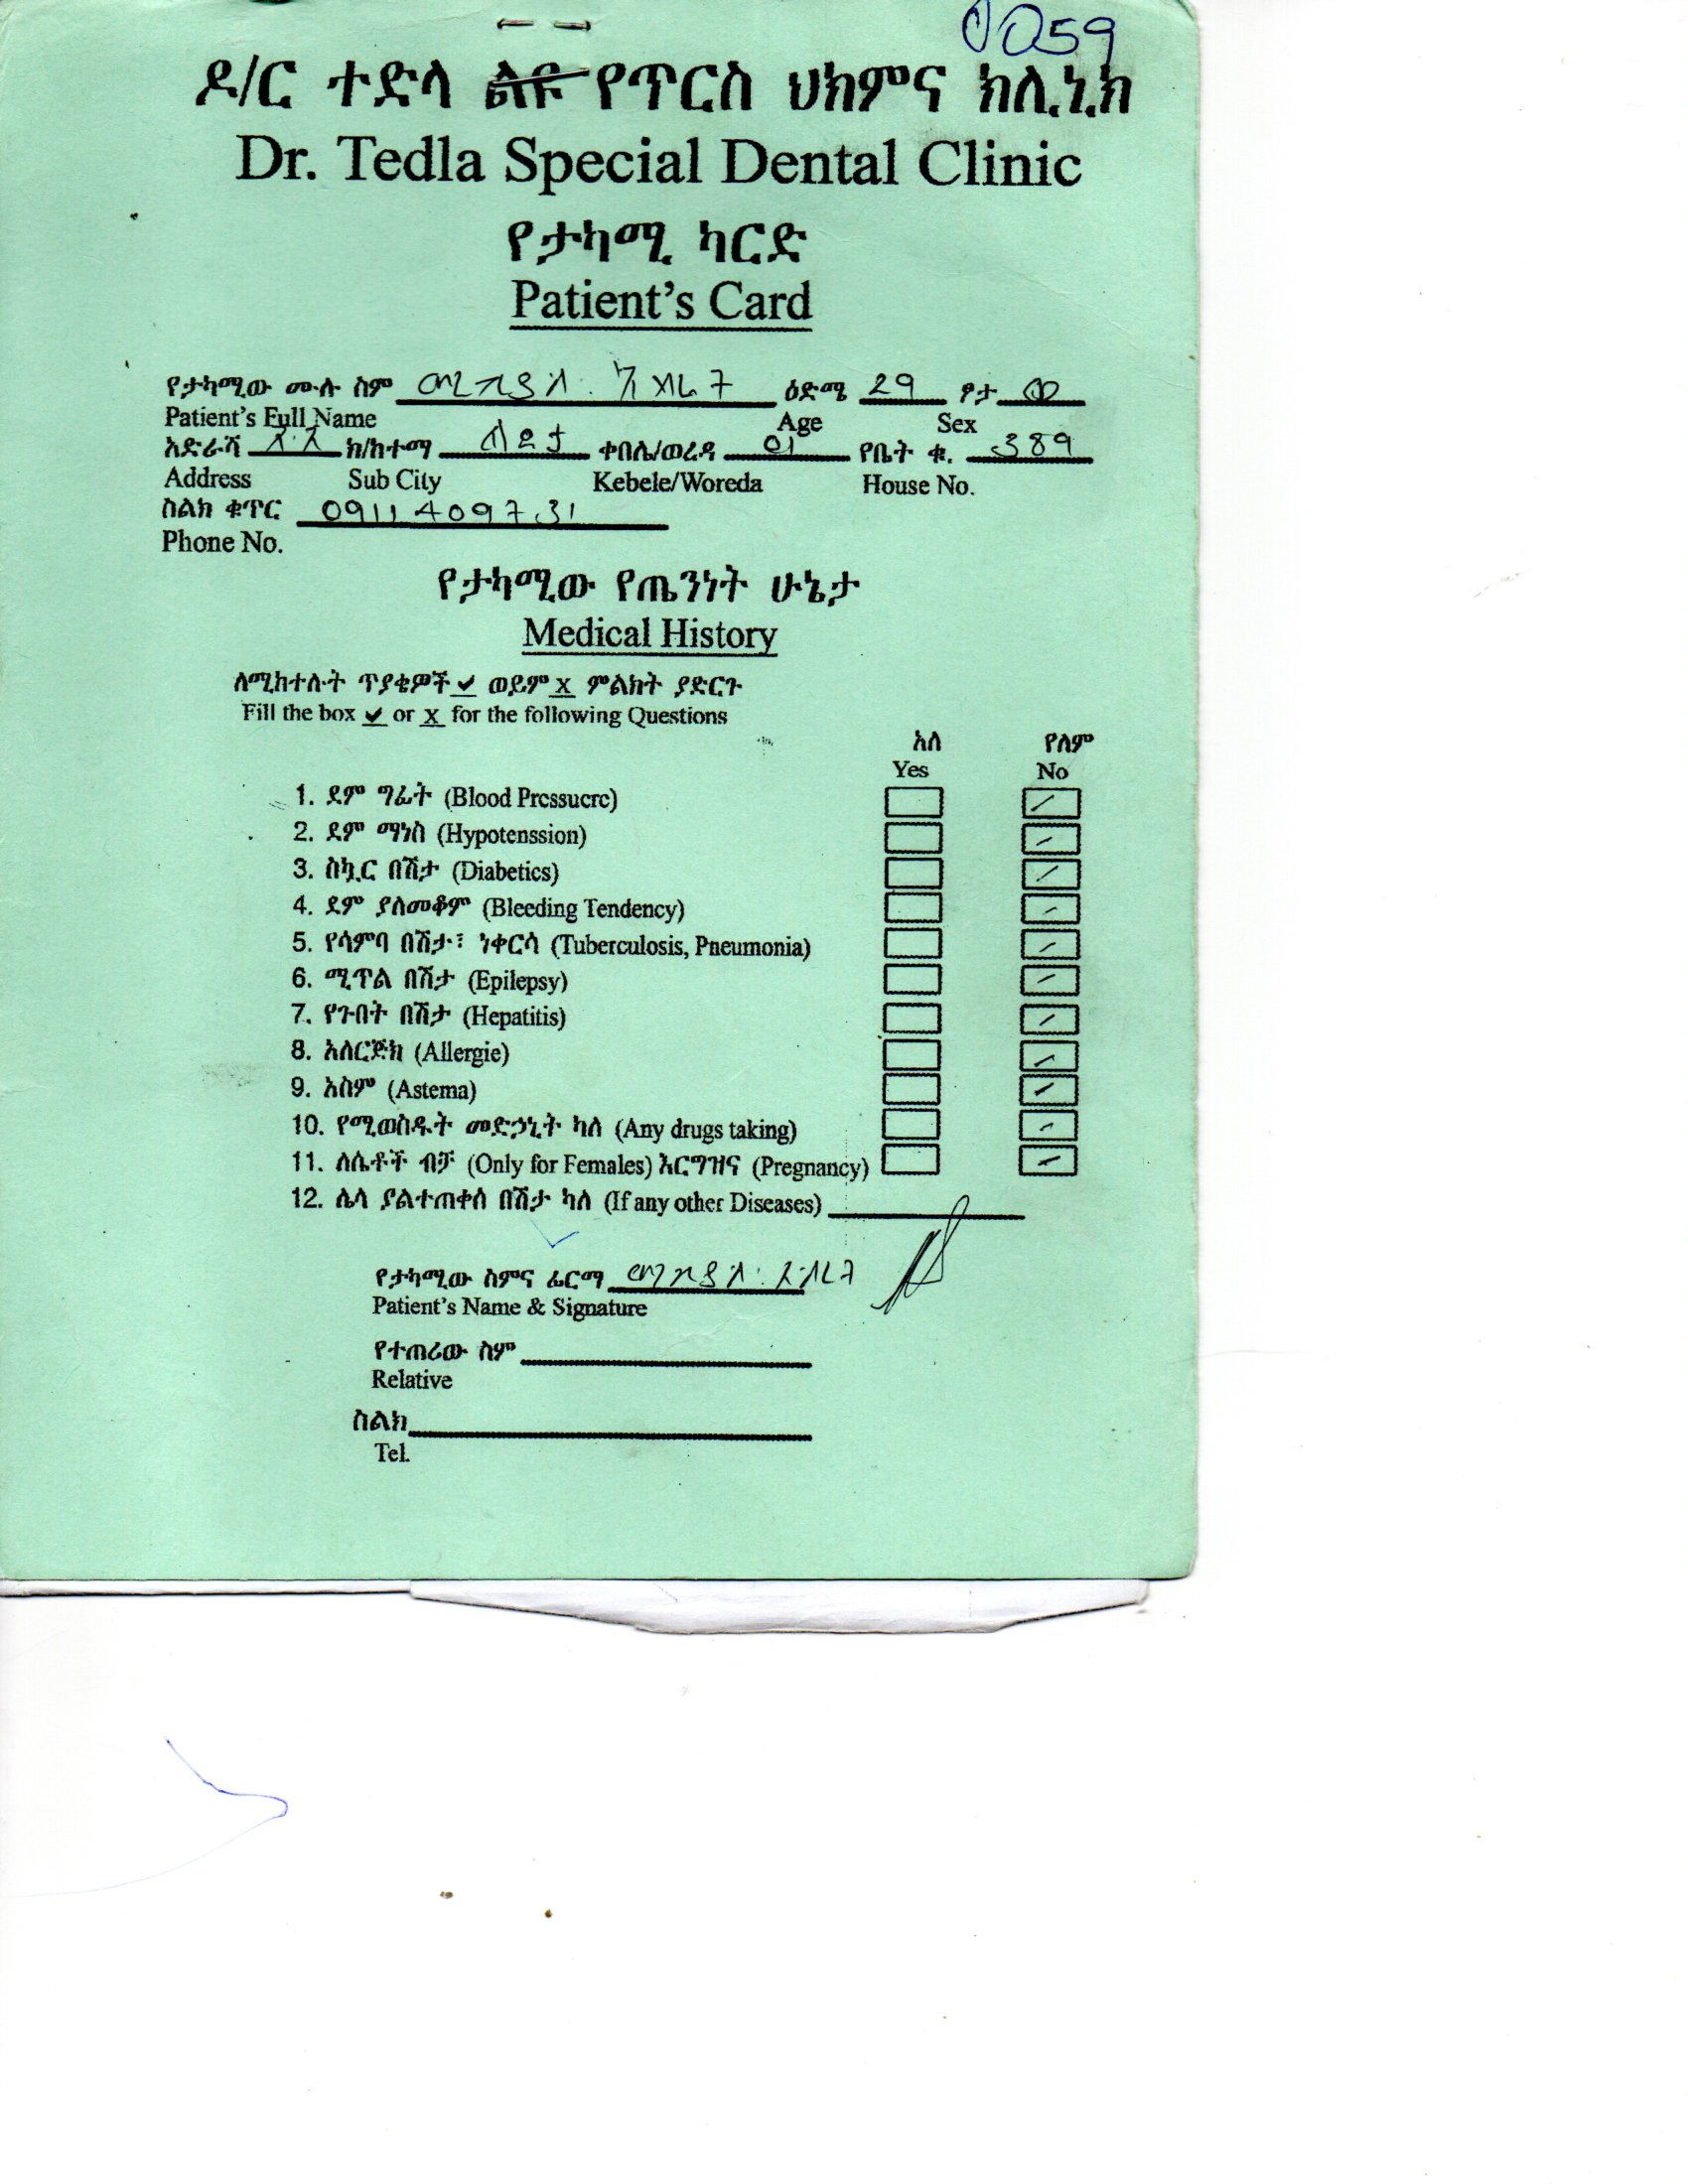 059
ዶ/ር ተድላ ልዩ የጥርስ ህክምና ክሊኒክ
Dr. Tedla Special Dental Clinic
የታካሚ ካርድ
Patient's Card
የታካሚው ሙሉ ስም ዕድሜ 29 ፆታ
Patient's Full Name Age Sex
አድራሻ አ.አ ክ/ከተማ ልደታ ቀበሌ/ወረዳ 01 የቤት ቁ. 389
Address Sub City Kebele/Woreda House No.
ስልክ ቁጥር 0911409731
Phone No.
የታካሚው የጤንነት ሁኔታ
Medical History
ለሚከተሉት ጥያቄዎች ✔ ወይም x ምልክት ያድርጉ
Fill the box ✔ or x for the following Questions
አለ የለም
Yes No
1. ደም ግፊት (Blood Pressuere)
2. ደም ማነስ (Hypotenssion)
3. ስኳር በሽታ (Diabetics)
4. ደም ያለመቆም (Bleeding Tendency)
5. የሳምባ በሽታ፣ ነቀርሳ (Tuberculosis, Pneumonia)
6. ሚጥል በሽታ (Epilepsy)
7. የጉበት በሽታ (Hepatitis)
8. አለርጅክ (Allergie)
9. አስም (Astema)
10. የሚወስዱት መድኃኒት ካለ (Any drugs taking)
11. ለሴቶች ብቻ (Only for Females) እርግዝና (Pregnancy)
12. ሌላ ያልተጠቀሰ በሽታ ካለ (If any other Diseases)
የታካሚው ስምና ፊርማ
Patient's Name & Signature
የተጠሪው ስም
Relative
ስልክ
Tel.